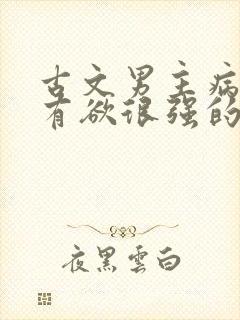 古文男主病
有欲很强的
夜黑雲白